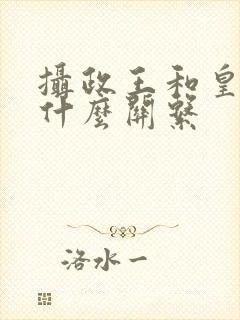 攝政王和皇
什麼關繫
洛水一